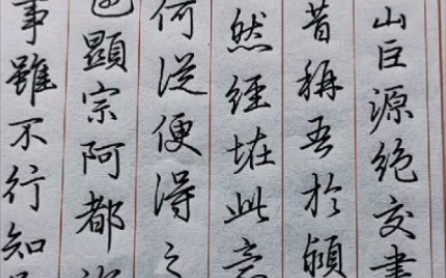 山巨源绝交書
昔稱吾於
然經怪此意
何從便得之
顯宗阿都
事雖不行知